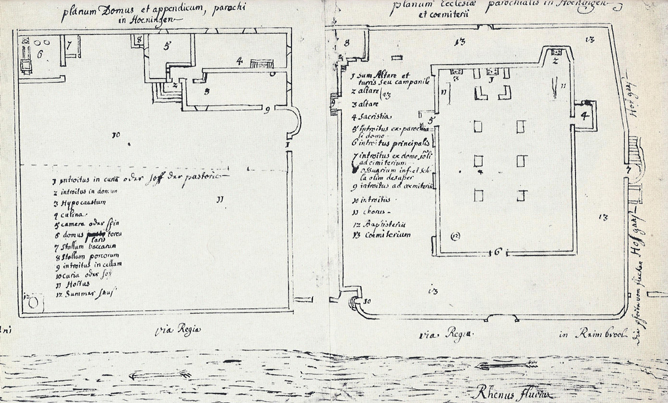 planum Domus et appendicum, parochi
in Hoeningen
1 introitus in curiā oder hoff der pastorie
2 introitus in domum
3 Hypocaustum
4 culina
5 camera oder
6 domus
7 Stallum vaccarum
8 Stallum porcorum
9 introitus in cellam
10 Curia oder hoff
11 Hortus
12 Summer hauß
via Regia
planum Ecclesiæ parochialis in Hoeningen
et coemiterii
1 Sum Altare et
turris seu campanile
2 altare
3 altare
4 Sacristia
5 introitus ex parochia
domo
6 introitus principalis
7 introitus ex
coemiterium
8 Ossuarium inf. et
olim desuper
9 introitus ad coemiterium
10 introitus
11 chorus
12 Baptisterium
13 Coemiterium
via Regia
in Reimbroel
Hofgaß
Hofgaß
Rhenus fluvius